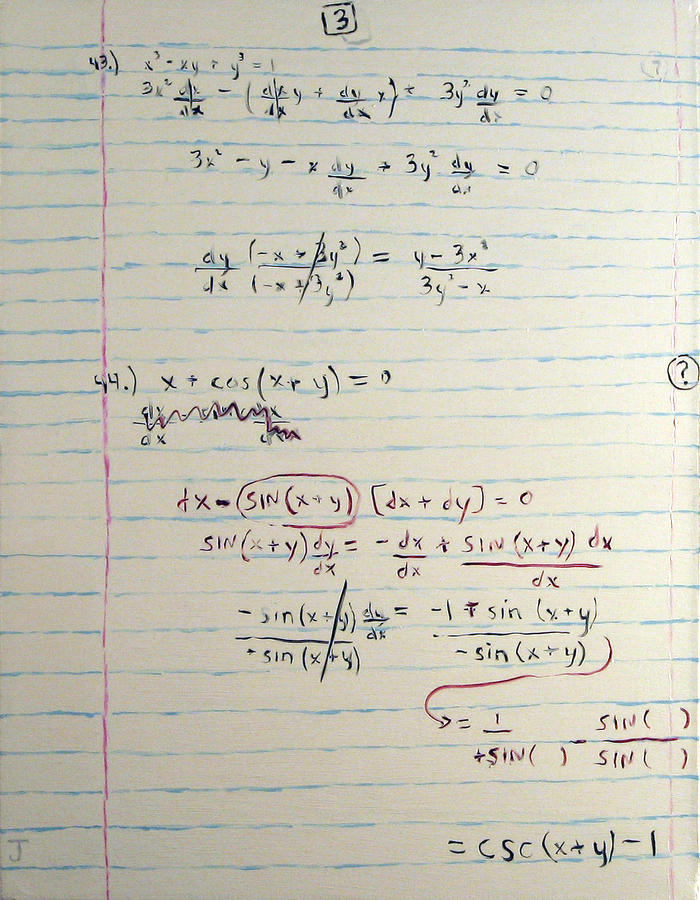 3
43.) x³ - xy + y³ = 1 (?)
3x² dx/dx - (dx/dx y + dy/dx x) + 3y² dy/dx = 0
3x² - y - x dy/dx + 3y² dy/dx = 0
dy/dx (-x + 3y²)/(-x + 3y²) = (y - 3x²)/(3y² - x)
44.) x + cos(x + y) = 0 (?)
dx - SIN(x+y) [dx + dy] = 0
SIN(x+y) dy/dx = -dx/dx + SIN(x+y) dx/dx
-sin(x+y)/-sin(x+y) dy/dx = (-1 + sin(x+y))/(-sin(x+y))
= 1/+SIN( ) - SIN( )/SIN( )
= csc(x+y) - 1
J